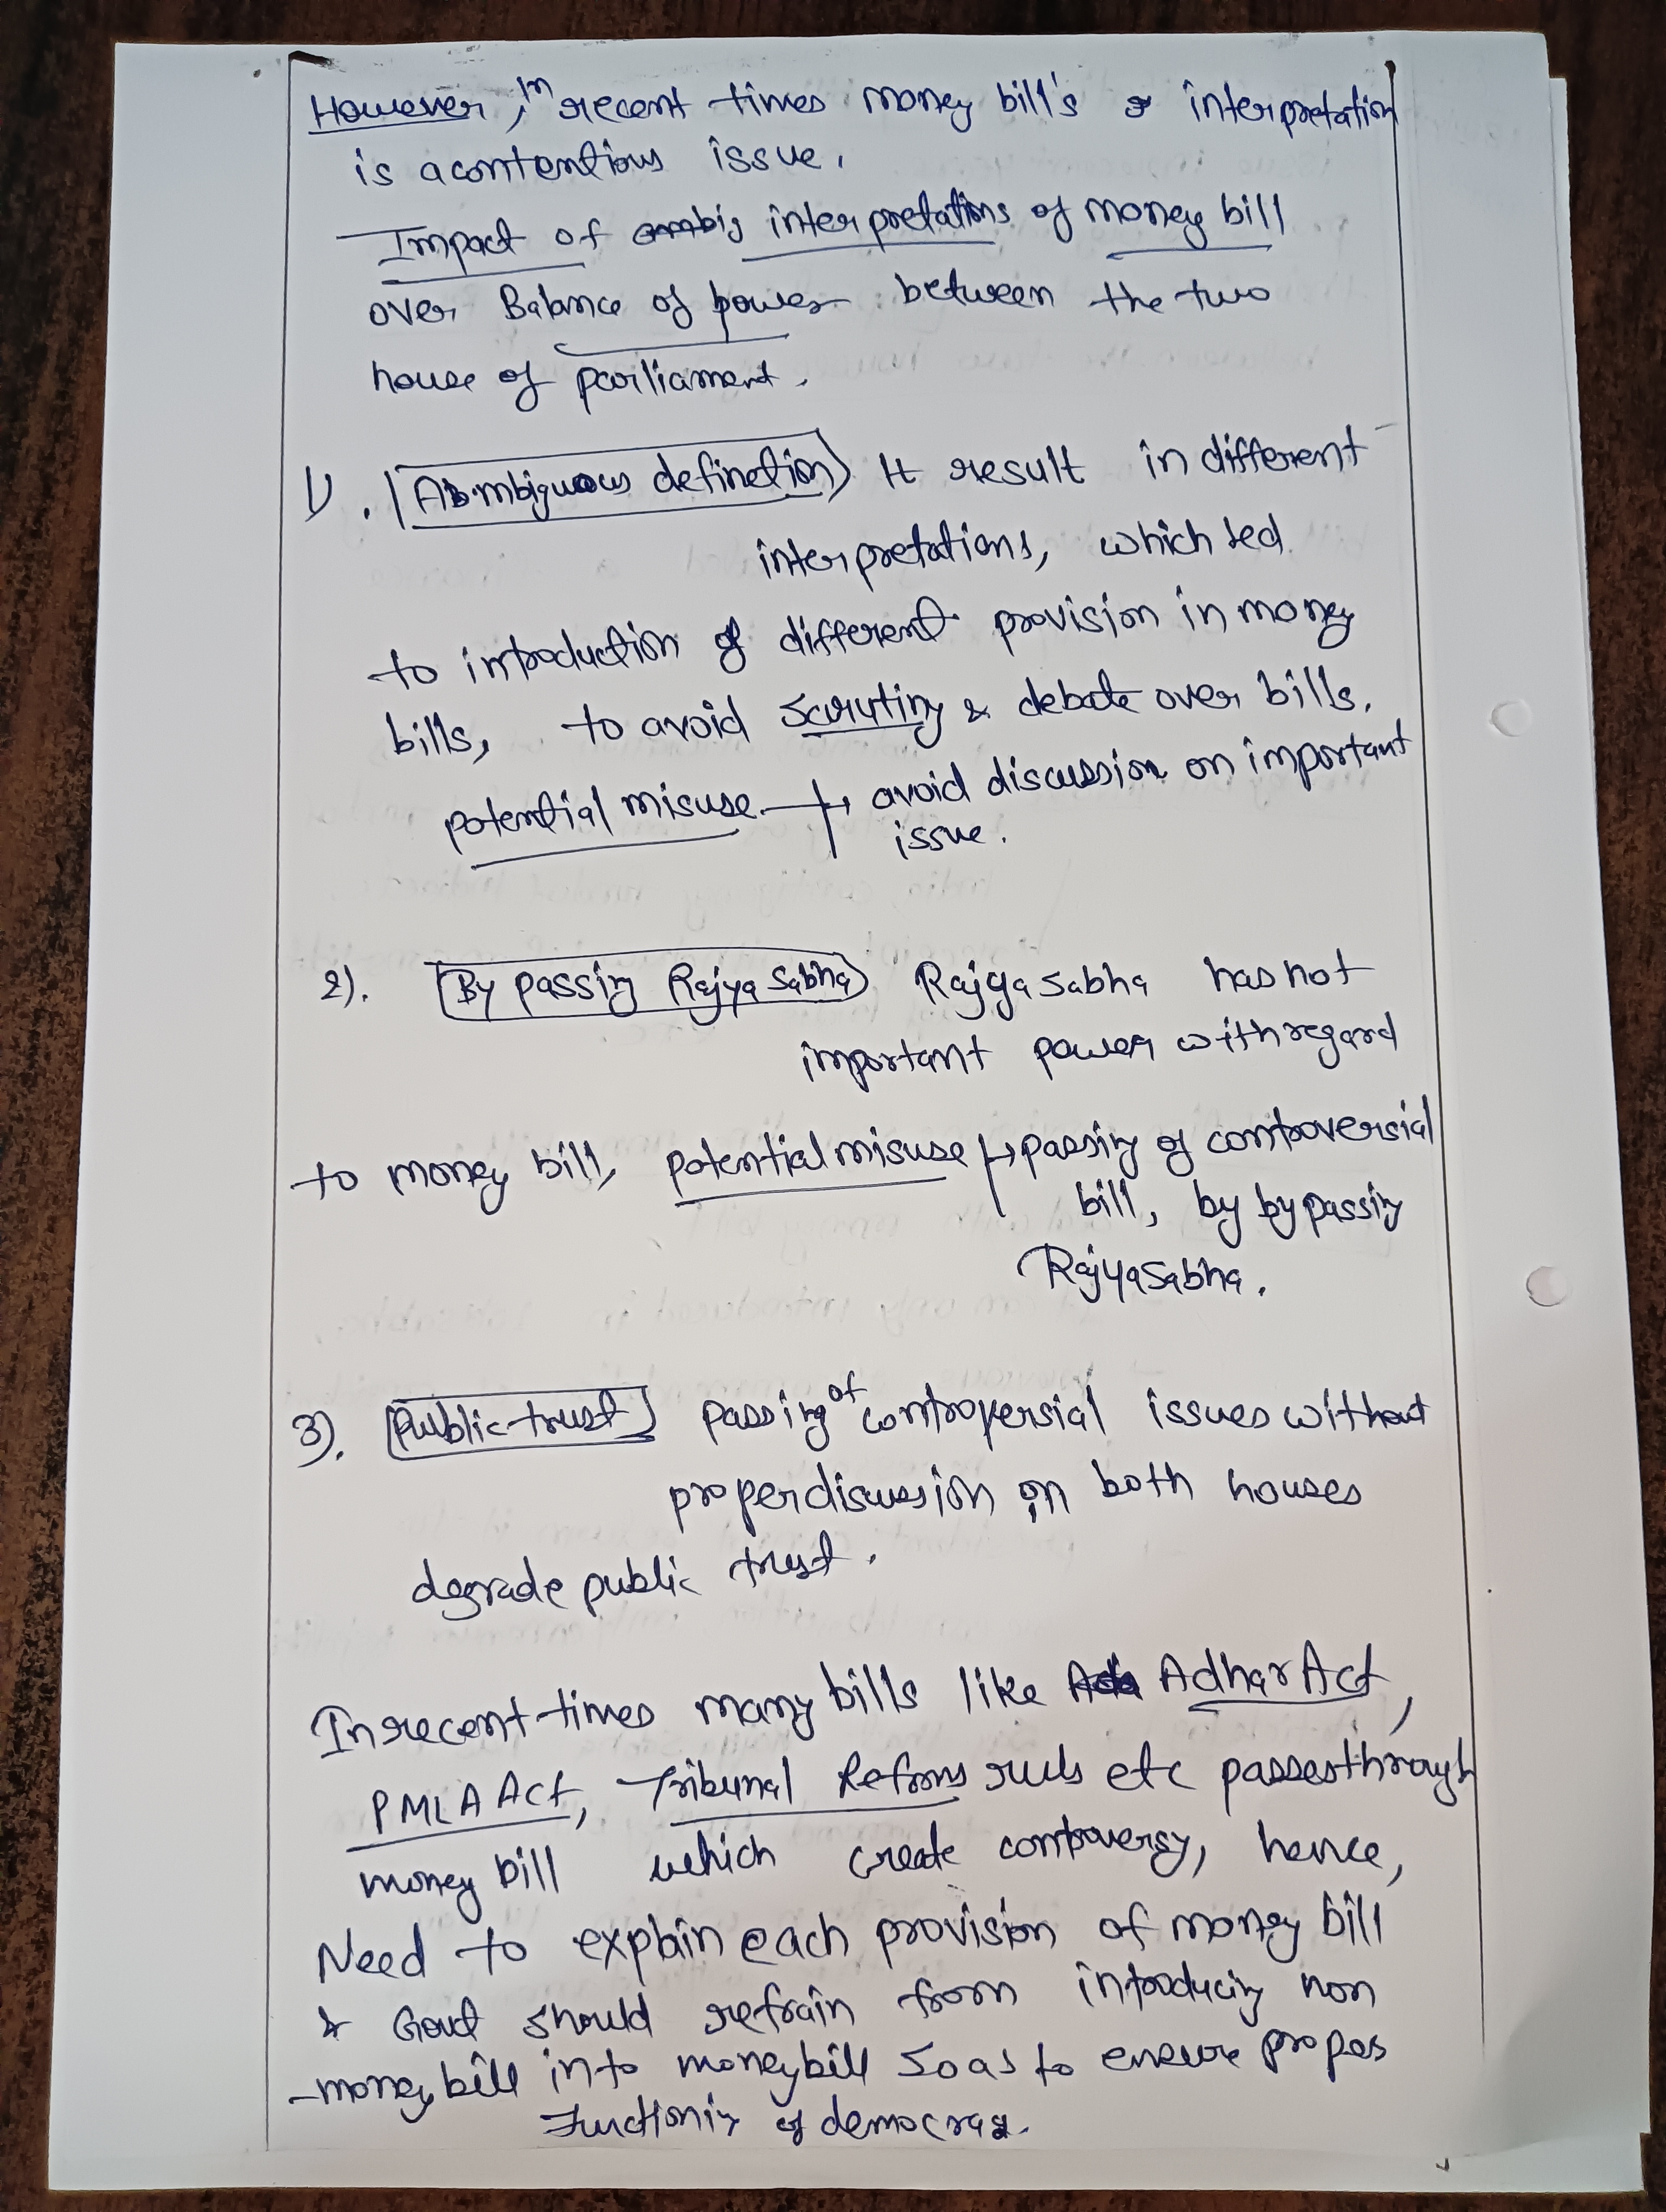 However, In recent times money bill's interpretation
is a contentious issue.
Impact of interpretations of money bill
over Balance of power between the two
house of parliament.
1). Abmbiguous definetion It result in different
interpretations, which led
to introduction of different provision in money
bills, to avoid scrutiny & debate over bills.
potential misuse → avoid discussion on important
issue.
2). By passing Rajya Sabha Rajya Sabha has not
important power with regard
to money bill, potential misuse → passing of controversial
bill, by bypassing
Rajya Sabha.
3). Public trust passing of controversial issues without
proper discussion on both houses
degrade public trust.
In recent times many bills like Adhar Act,
PMLA Act, Tribunal Reforms ruls etc passes through
money bill which create controversy, hence,
Need to explain each provision of money bill
& Govt should refrain from introducing non
-money bill into money bill so as to ensure proper
functioning of democracy.